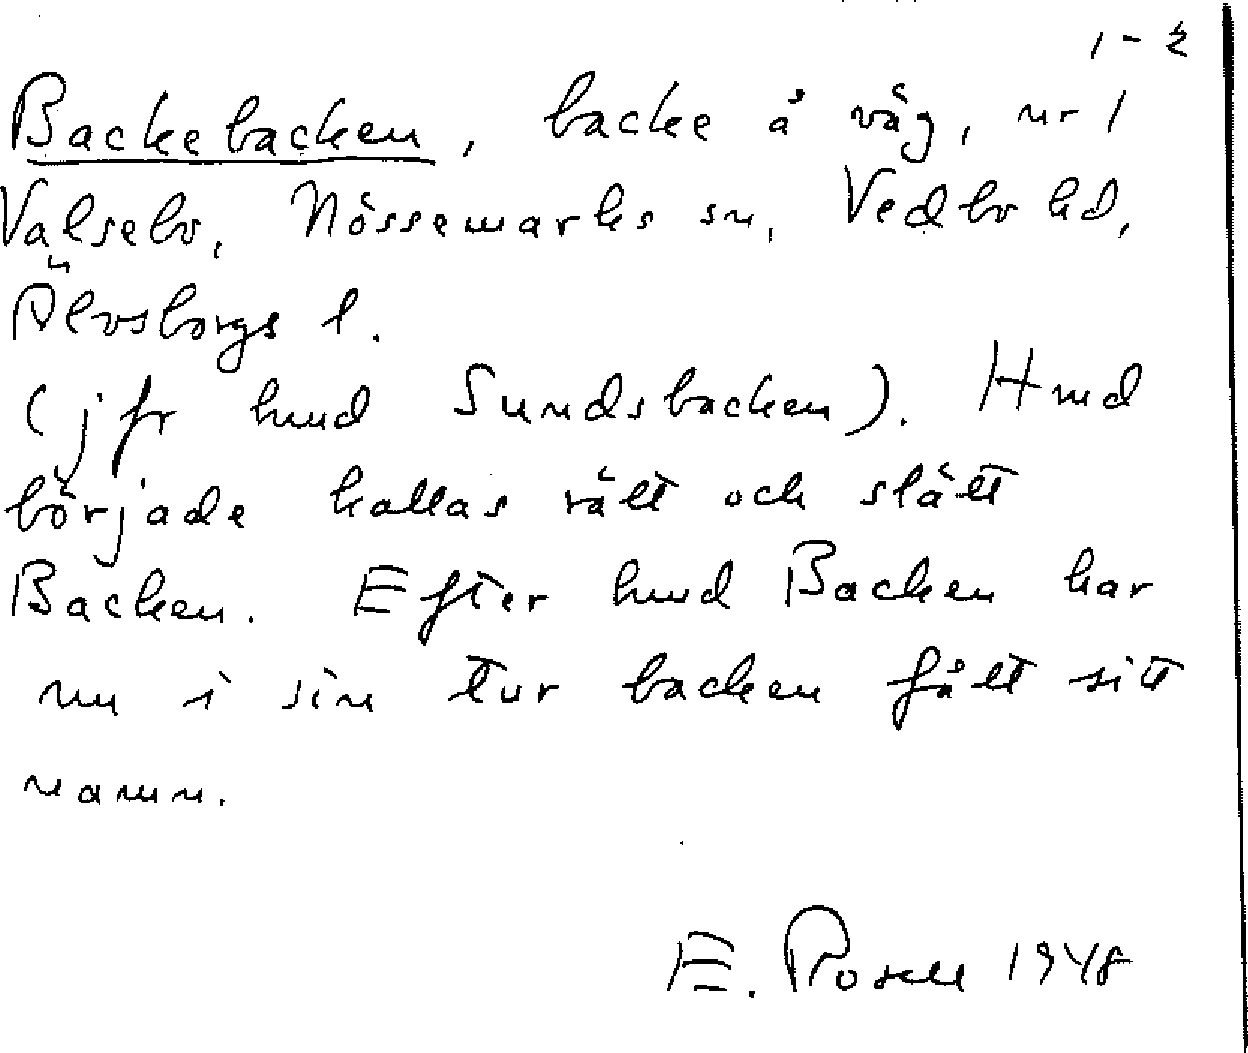 1-2
Backebacken, backe å väg, nr 1
Valsebo, Nössemarks sn, Vedbo hd,
Älvsborgs l.
(jfr hmd Sundsbacken). Hmd
började kallas rätt och slätt
Backen. Efter hmd Backen har
nu i sin tur backen fått sitt
namn.
E. Rosell 1948